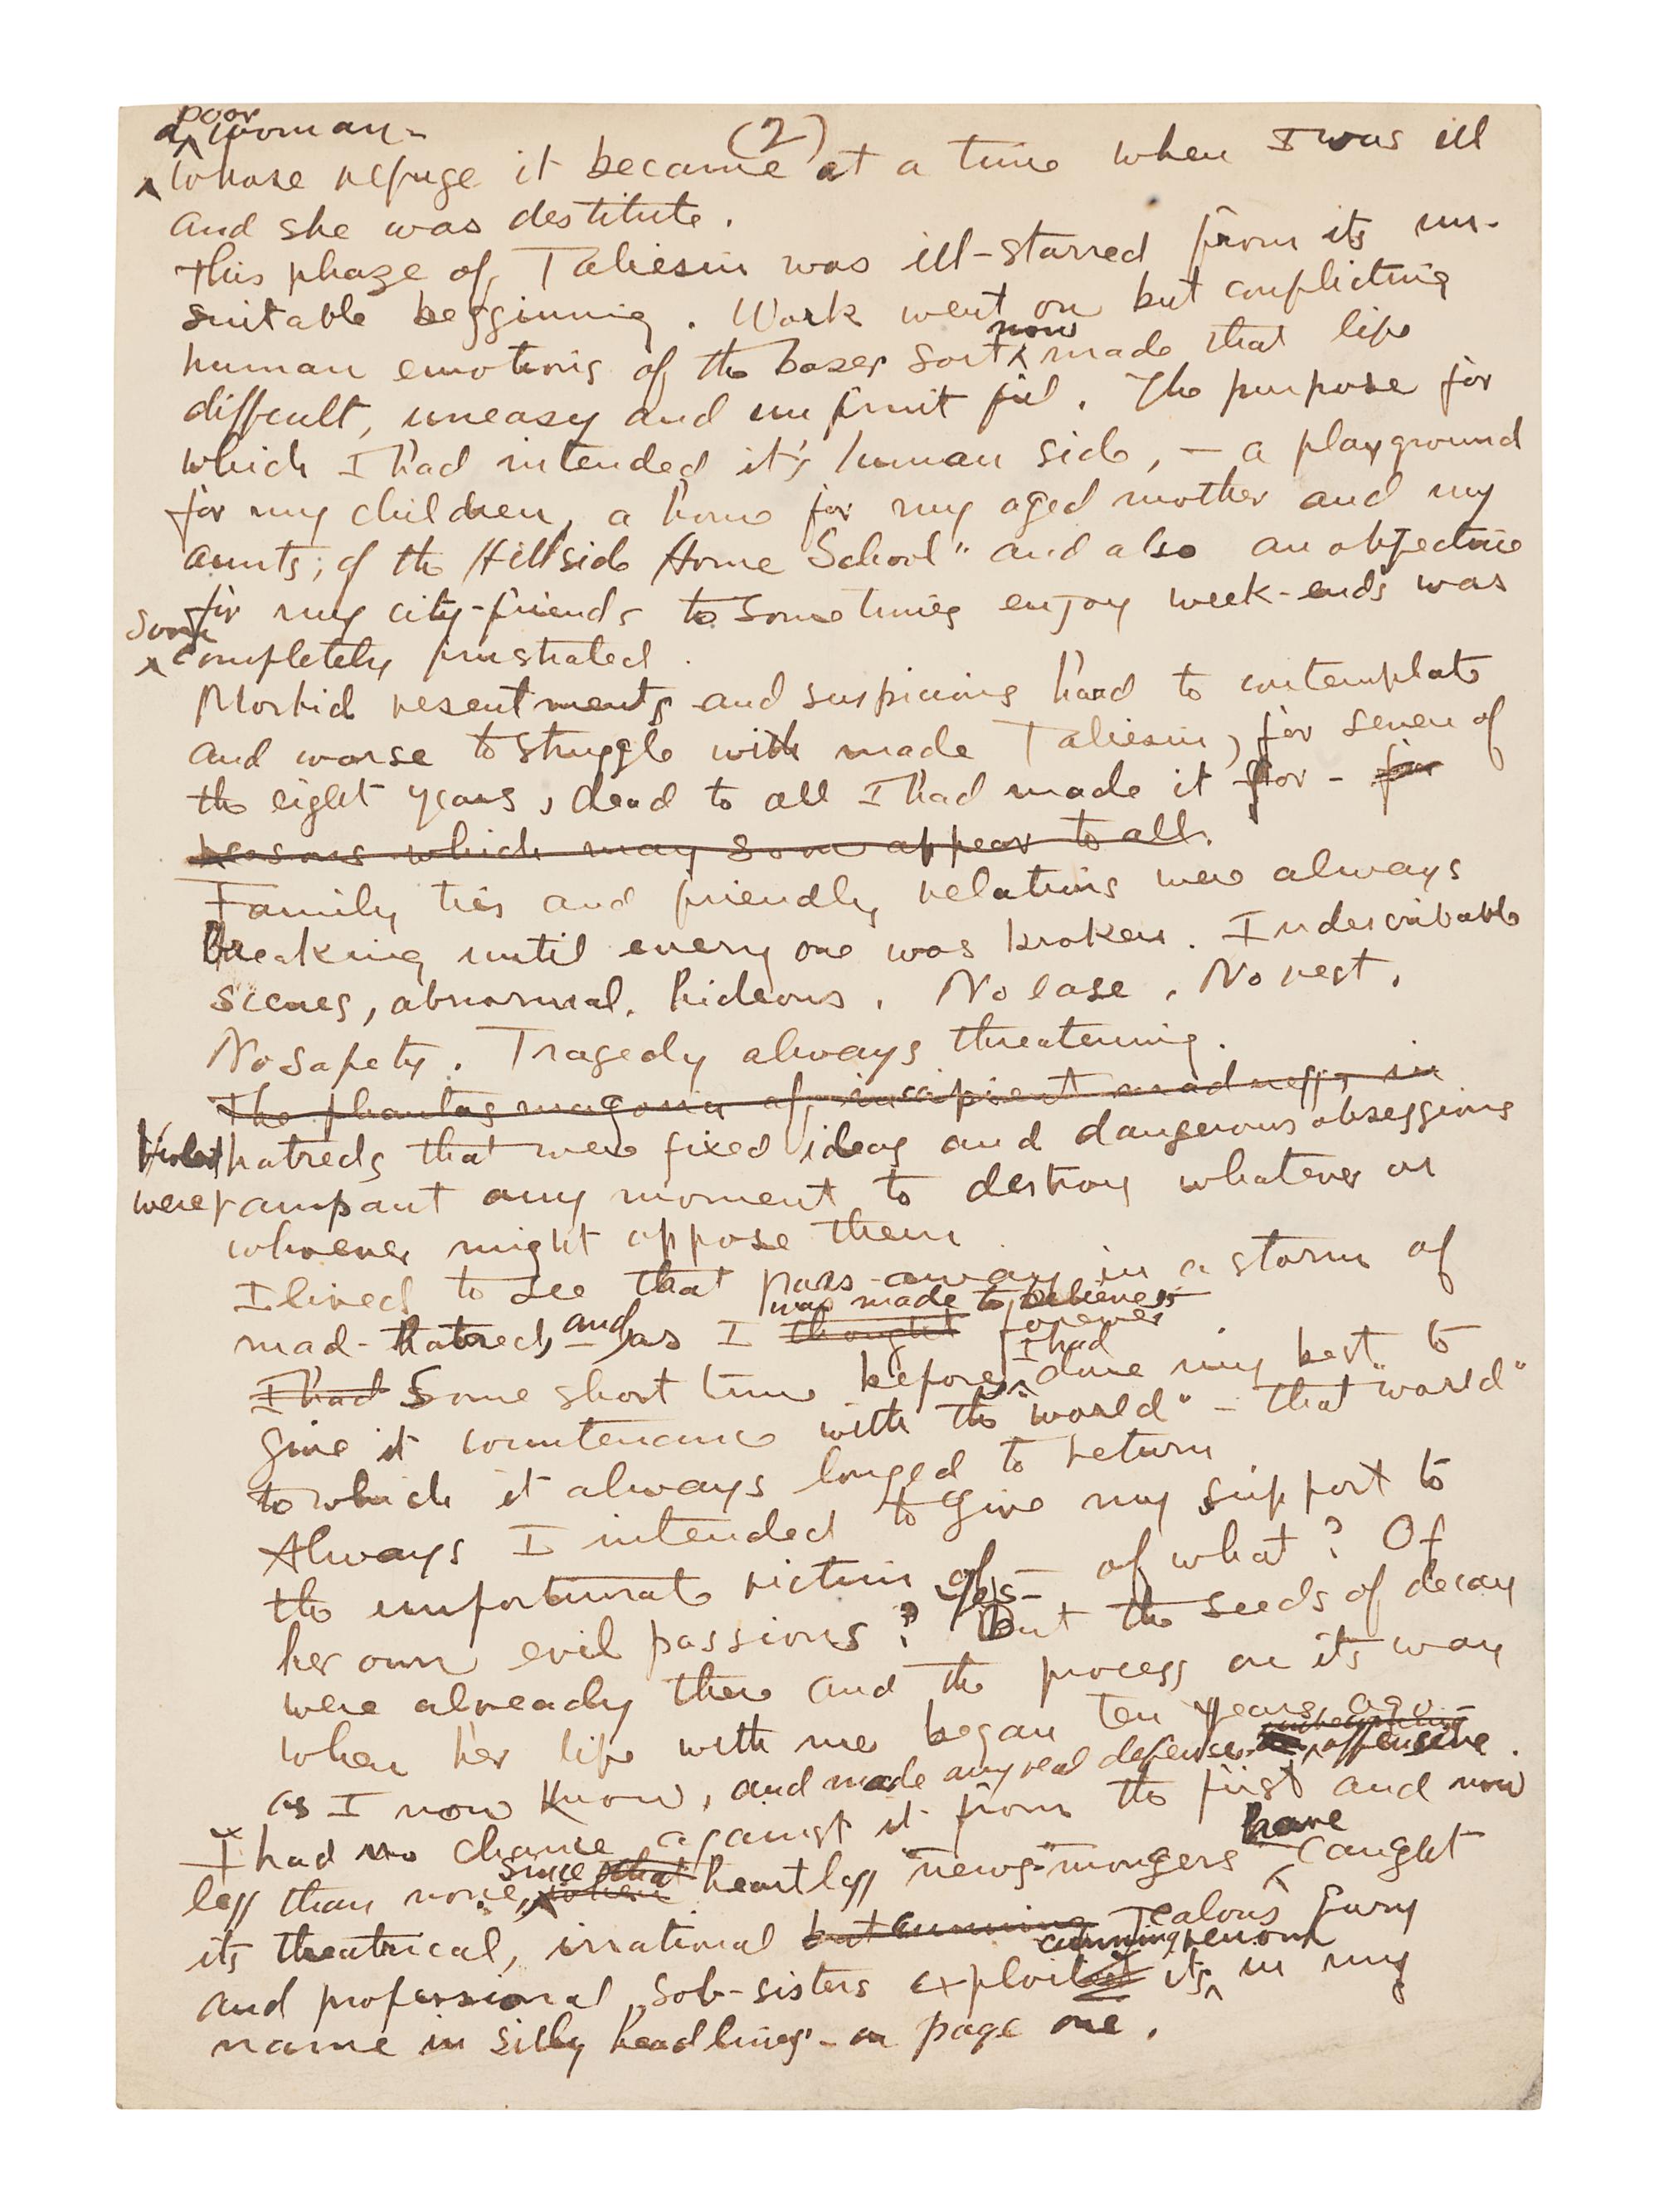 a poor woman -
(2)
whose refuge it became at a time when I was ill
and she was destitute.
This phaze of Taliesin was ill-starred from its un-
suitable begginning. Work went on but conflicting
human emotions of the baser sort now made that life
difficult, uneasy and unfruitful. The purpose for
which I had intended it's human side, - a playground
for my children, a home for my aged mother and my
aunts, of the Hillside Home School" and also an objective
for my city-friends to sometimes enjoy week-ends was
soon completely frustrated.
Morbid resentments and suspicions hard to contemplate
and worse to struggle with made Taliesin, for seven of
the eight years, dead to all I had made it for - for
reasons which may soon appear to all.
Family ties and friendly relations were always
breaking until every one was broken. Indescribable
scenes, abnormal, hideous. No ease. No rest.
No safety. Tragedy always threatening.
The phantasmagoria of incipient madness, in
Violent hatreds that were fixed ideas and dangerous obsessions
were rampant any moment to destroy whatever or
whoever might oppose them.
I lived to see that pass away in a storm of
was made to believe
mad-hatred, and as I thought forever
I had
I had Some short time before, done my best to
give it countenance with the "world" - that "world"
to which it always longed to return.
Always I intended to give my support to
the unfortunate victim of - of what? Of
her own evil passions? Yes - But the seeds of decay
were already there and the process on its way
when her life with me began ten years ago -
as I now know, and made any real defense offensive.
I had no chance against it from the first and now
less than none, since that when heartless "news-mongers have caught
its theatrical, irrational but cunning jealous fury
and professional "sob-sisters exploit its cunning venom in my
name in silly headlines - on page one.